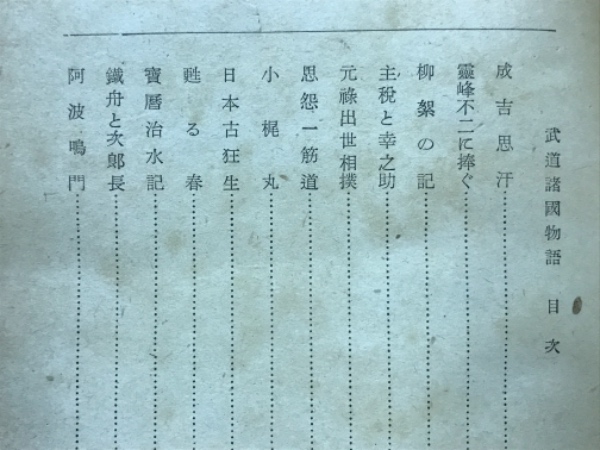 武道諸國物語 目次
成吉思汗
靈峰不二に捧ぐ
柳絮の記
主税と幸之助
元祿出世相撲
恩怨一筋道
小梶丸
日本古狂生
甦る春
寶曆治水記
鐵舟と次郎長
阿波鳴門